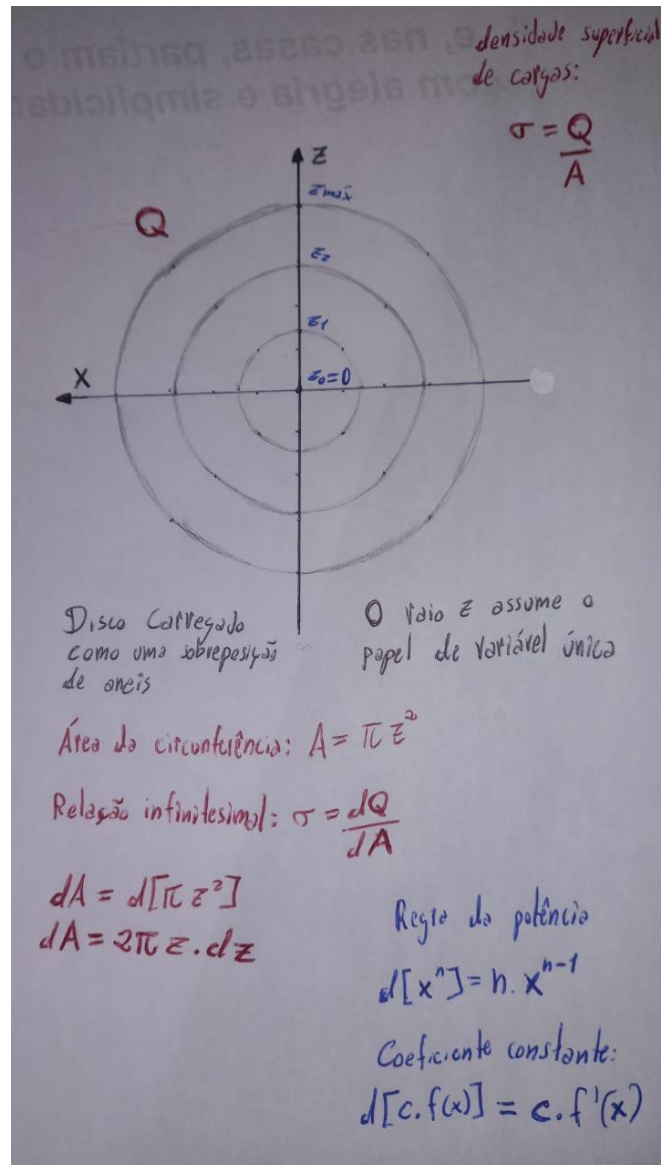 e, nas casas, partiam o
com alegria e simplicidad
densidade superficial
de cargas:
σ = Q
A
Z
Zmáx
Q
Z2
Z1
X
Z0=0
Disco Carregado
como uma sobreposição
de aneis
O raio z assume o
papel de variável única
Área da circunferência: A = π z²
Relação infinitesimal: σ = dQ
dA
dA = d[π z²]
dA = 2π z . dz
Regra da potência
d[xⁿ] = n . xⁿ⁻¹
Coeficiente constante:
d[c.f(x)] = c.f'(x)